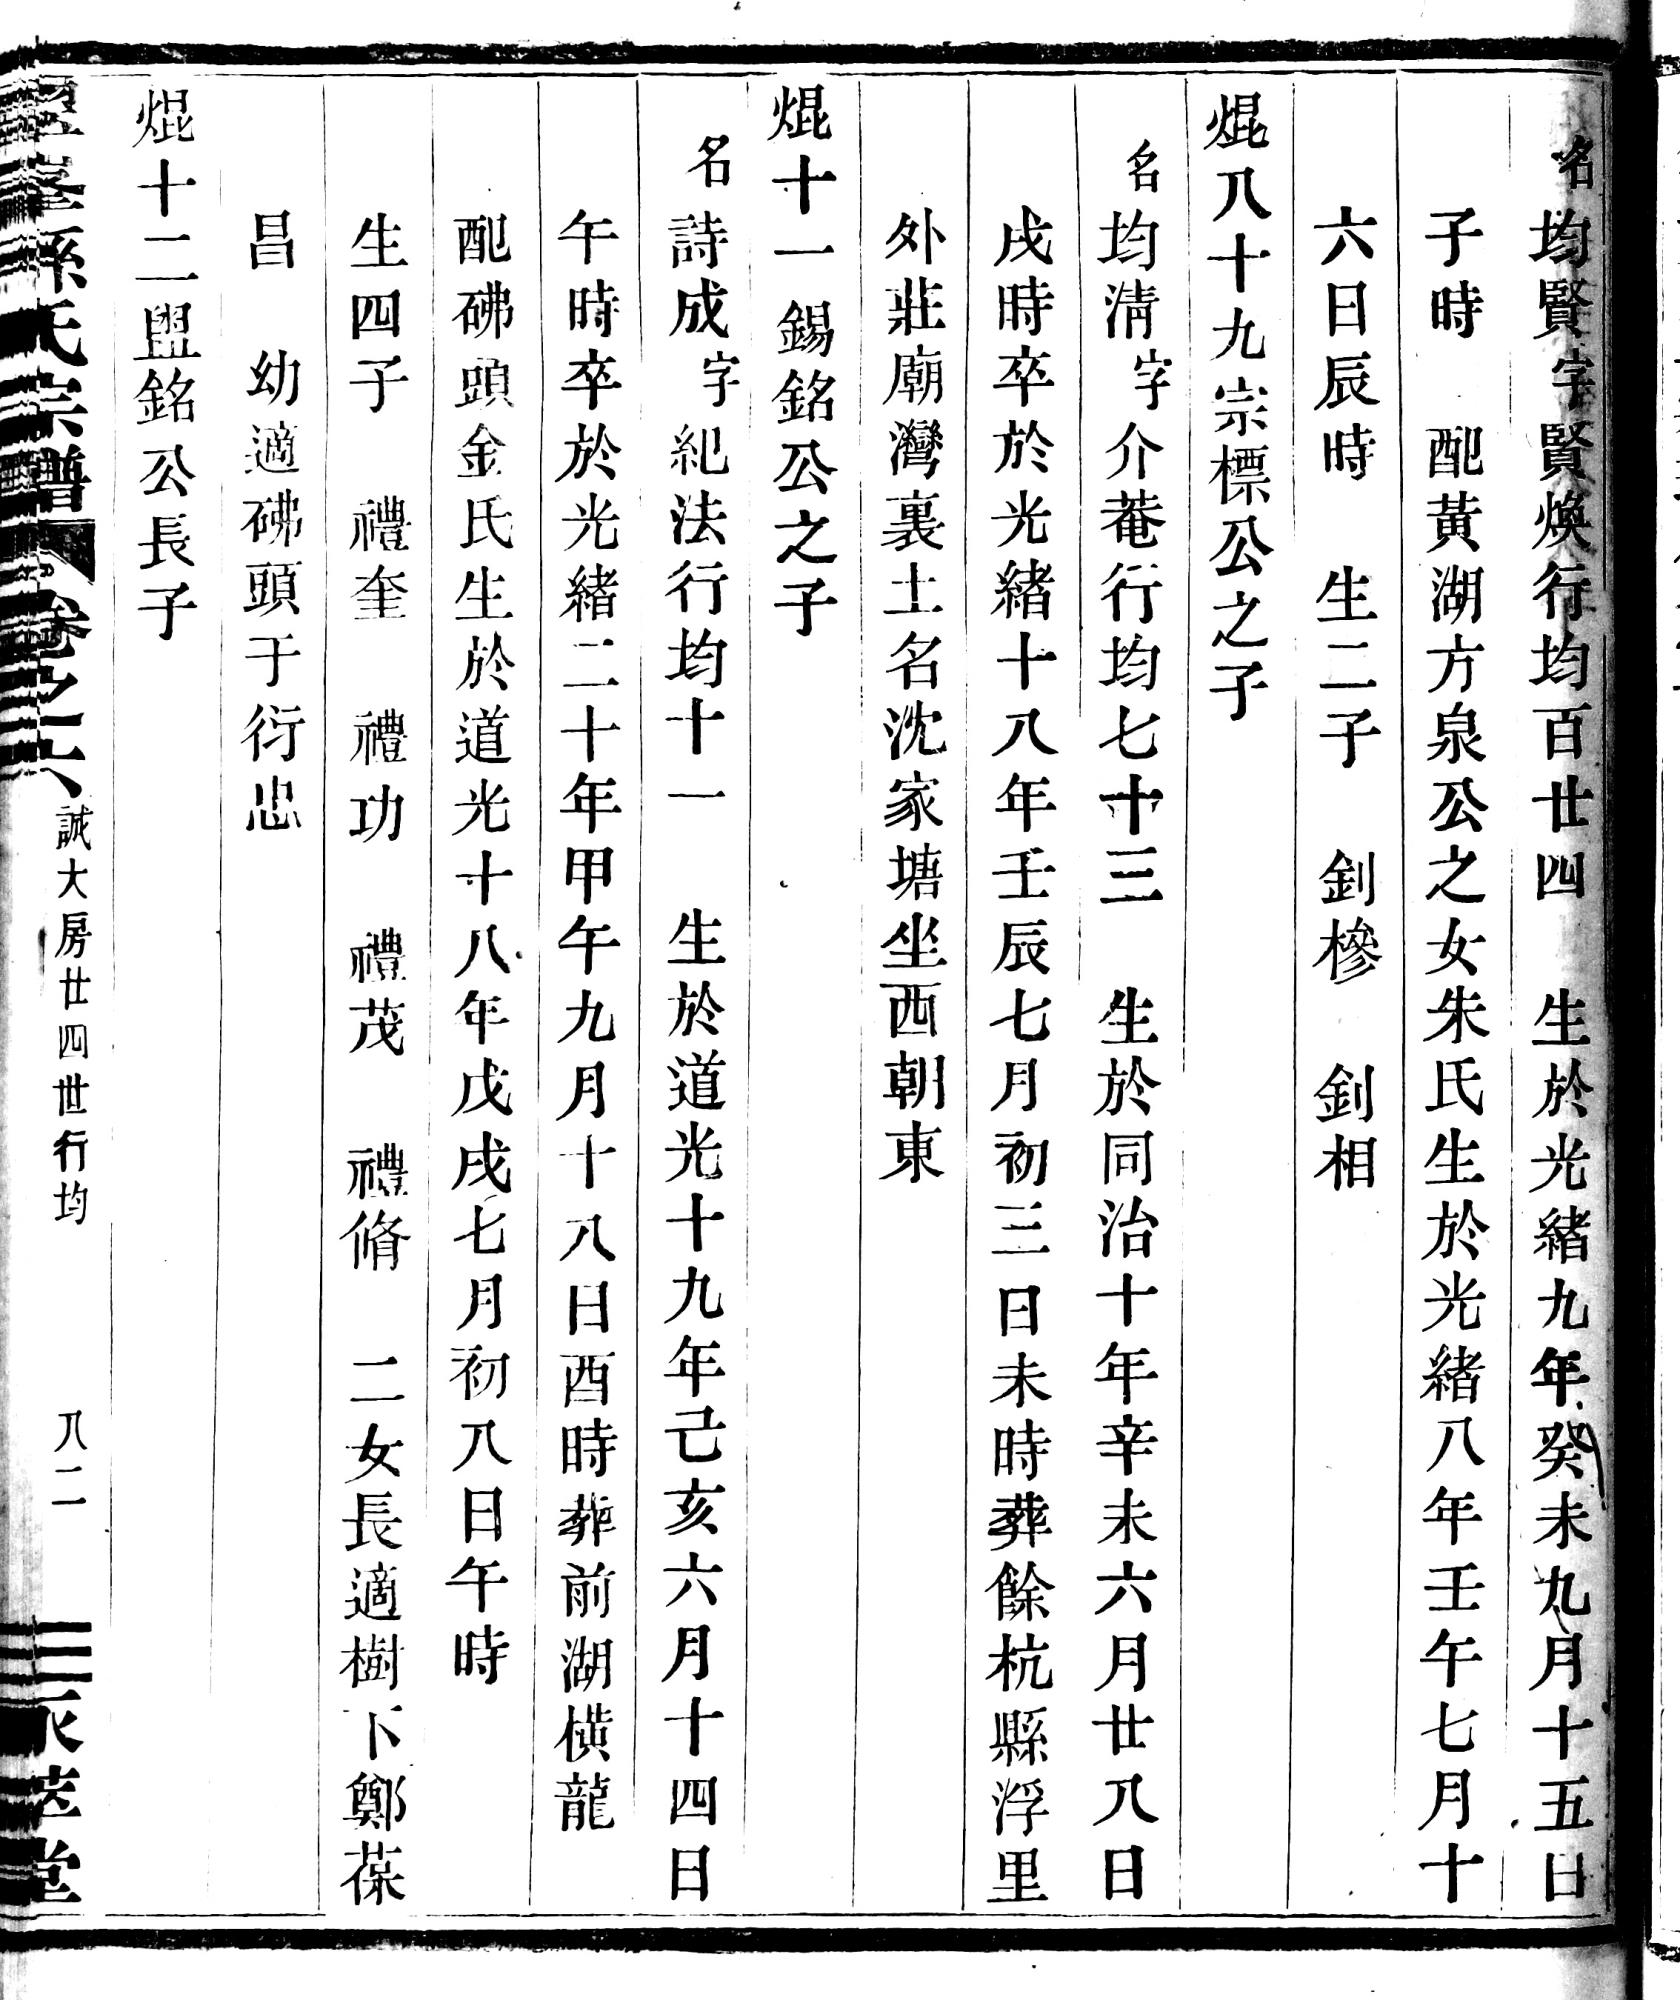 名均賢字賢煥行均百廿四　生於光緒九年癸未九月十五日
子時　配黃湖方泉公之女朱氏生於光緒八年壬午七月十
六日辰時　生二子　釗槮　釗相
焜八十九宗標公之子
名均淸字介菴行均七十三　生於同治十年辛未六月廿八日
戌時卒於光緖十八年壬辰七月初三日未時葬餘杭縣浮里
外莊廟灣裏土名沈家塘坐西朝東
焜十一錫銘公之子
名詩成字紀法行均十一　生於道光十九年己亥六月十四日
午時卒於光緖二十年甲午九月十八日酉時葬前湖橫龍
配砩頭金氏生於道光十八年戊戌七月初八日午時
生四子　禮奎　禮功　禮茂　禮脩　二女長適樹下鄭葆
昌　幼適砩頭于衍忠
焜十二盥銘公長子
孫氏宗譜 卷之六 誠大房廿四世行均 八二 堂